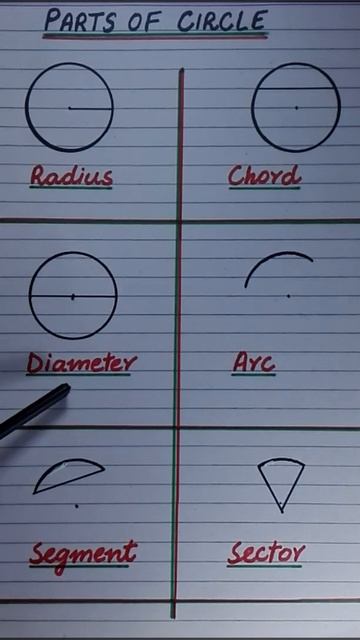 PARTS OF CIRCLE
Radius
Chord
Diameter
Arc
Segment
Sector